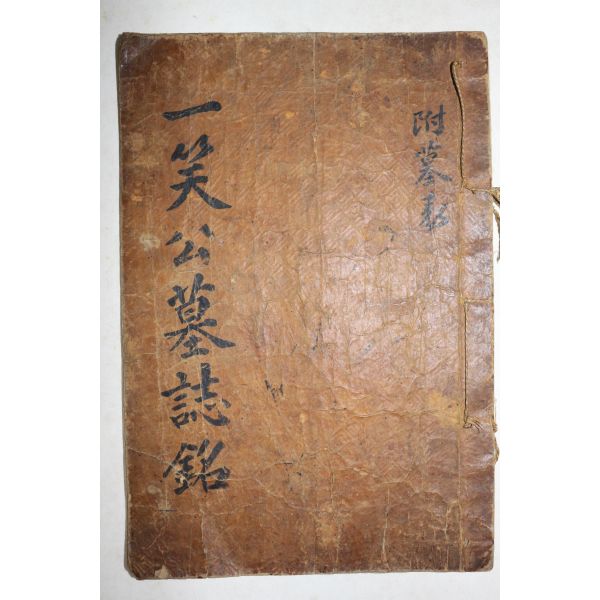 一笑公墓誌銘
附墓表